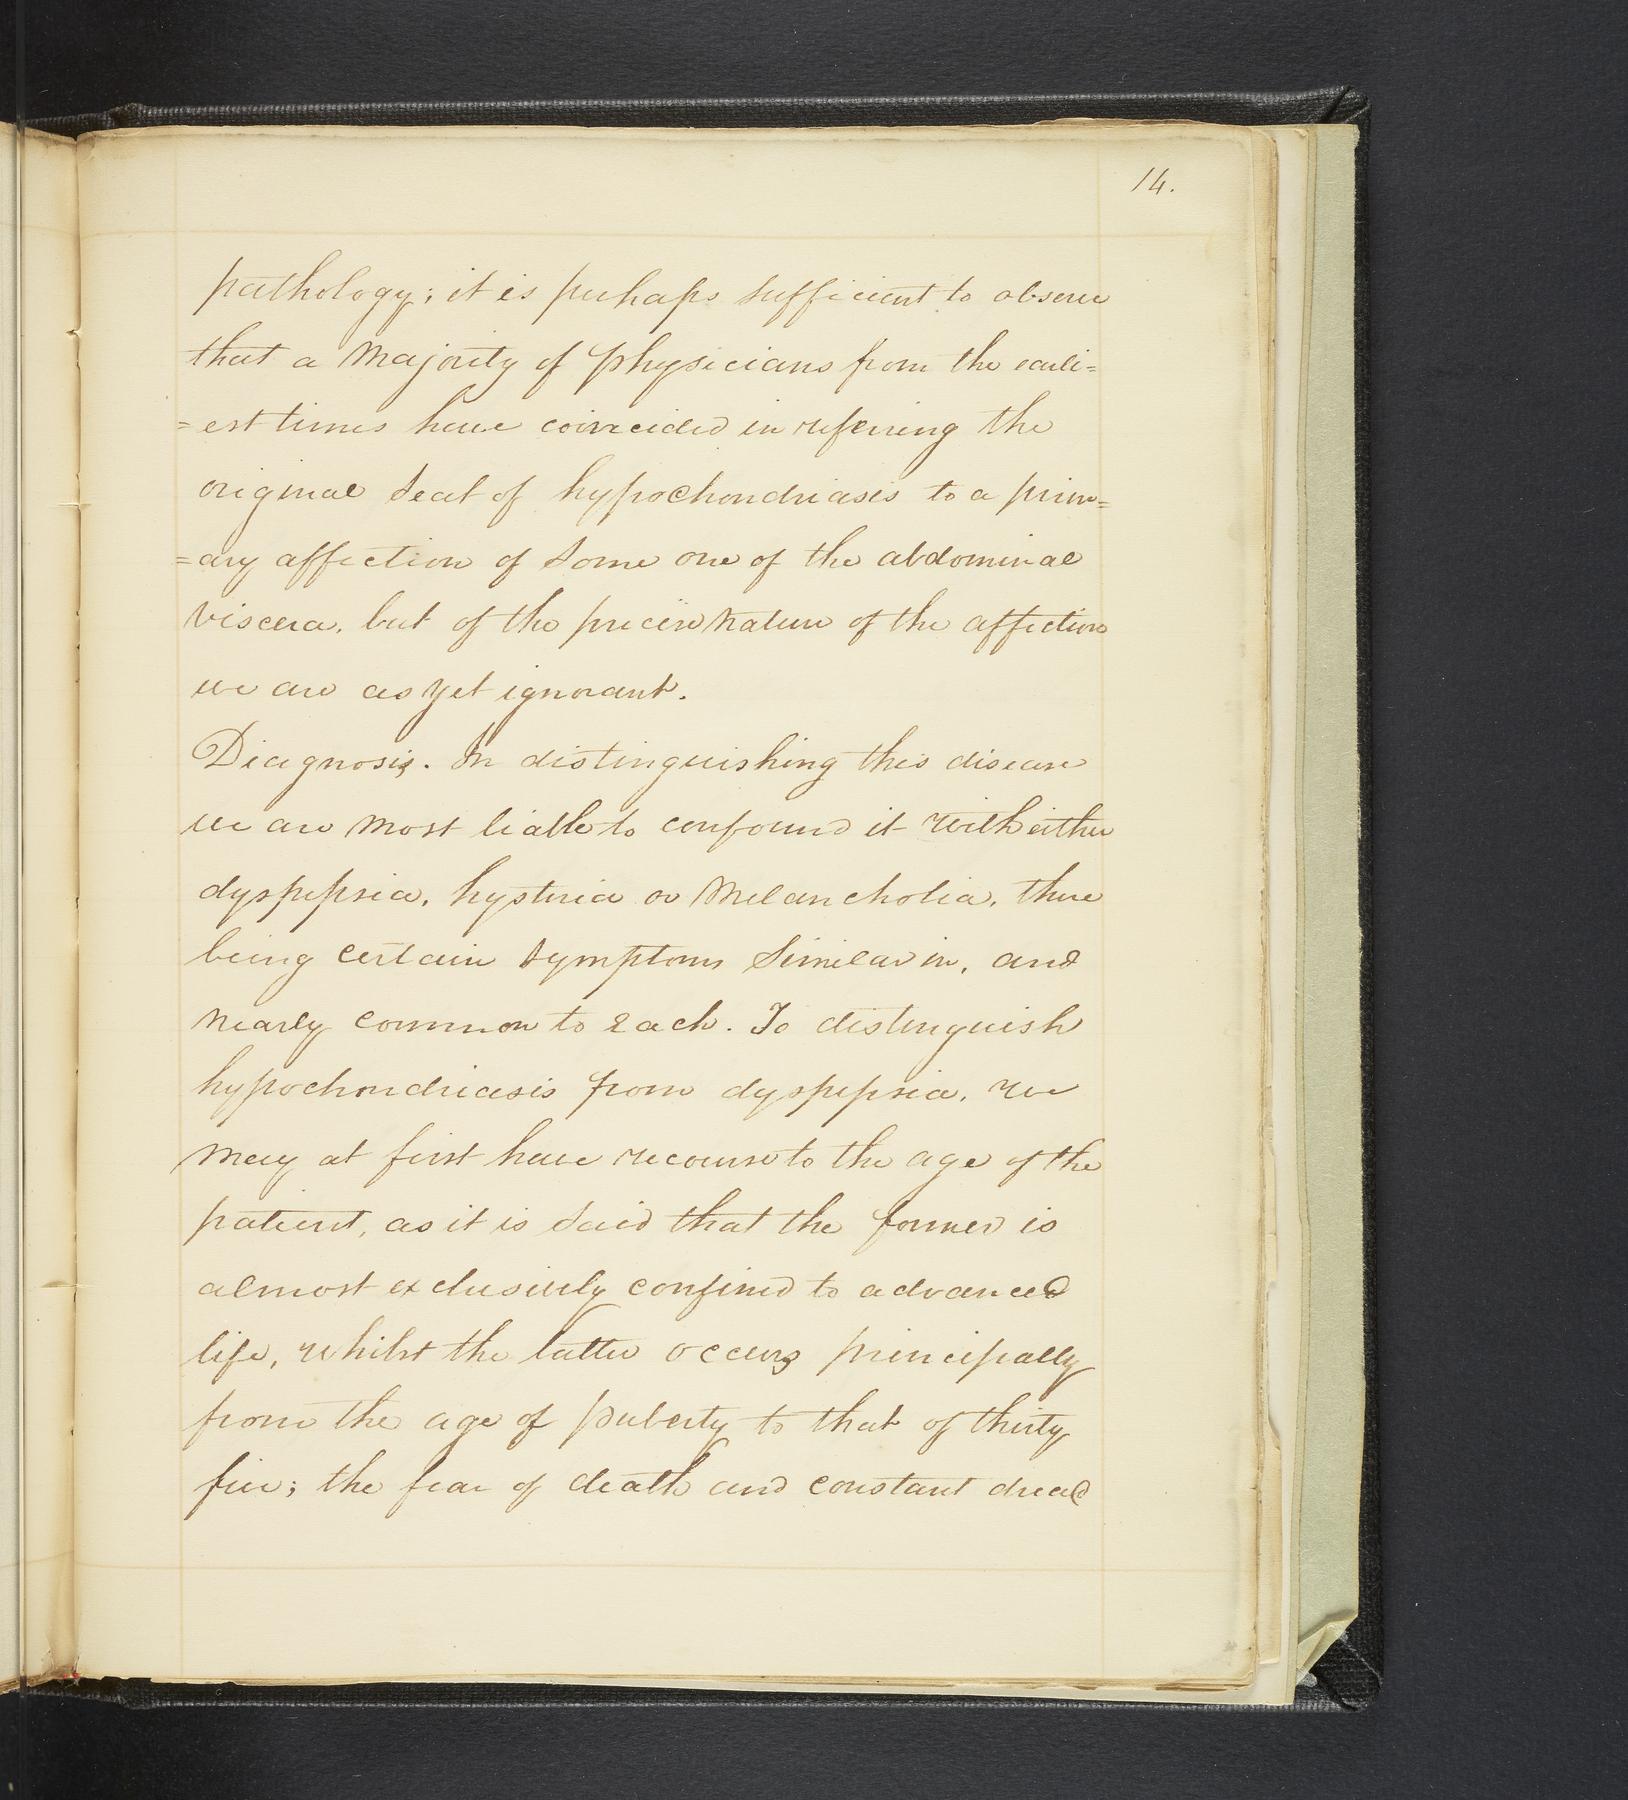 14.
pathology; it is perhaps sufficient to observe
that a majority of physicians from the earli=
=est times have coincided in refering the
original seat of hypochondriasis to a prim=
=ary affection of some one of the abdominal
viscera, but of the precise nature of the affection
we are as yet ignorant.
Diagnosis. In distinguishing this disease
we are most liable to confound it with either
dyspepsia, hysteria or Melancholia, there
being certain symptoms similar in, and
nearly common to each. To distinguish
hypochondriasis from dyspepsia, we
may at first have recourse to the age of the
patient, as it is said that the former is
almost exclusively confined to advanced
life, whilst the latter occurs principally
from the age of puberty to that of thirty
five; the fear of death and constant dread